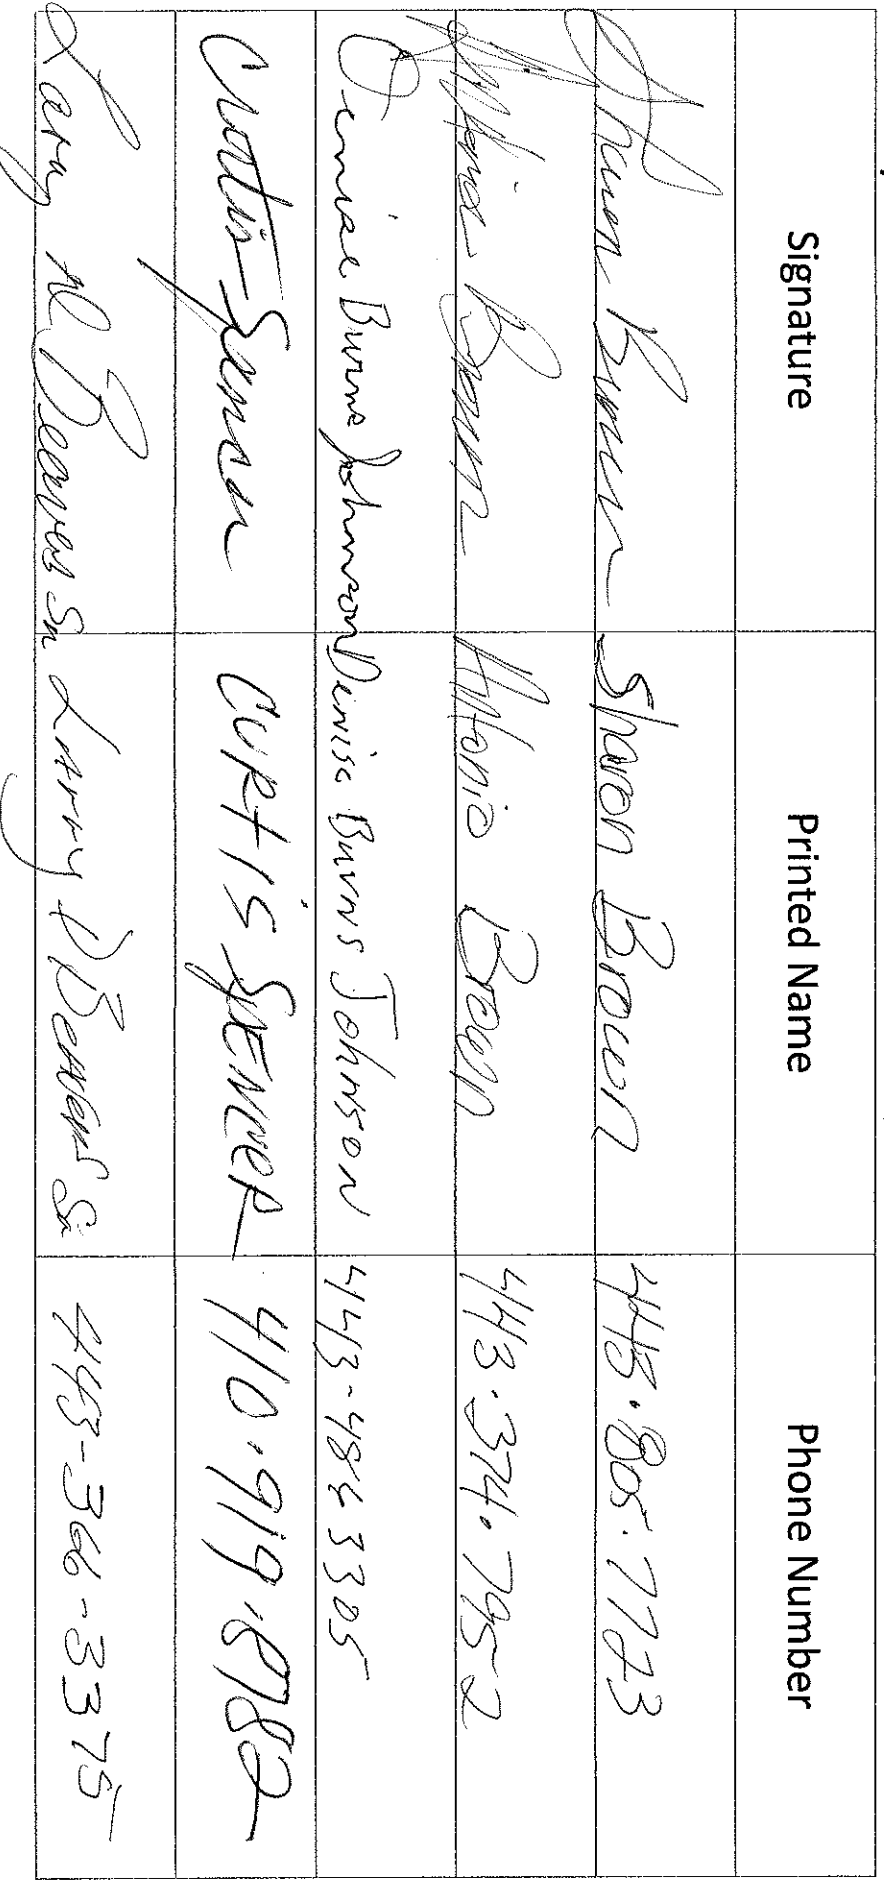 Signature Printed Name Phone Number
Sharon Brown Sharon Brown 443.805.7773
Brown Brown 443.374.7952
Denise Burns Johnson Denise Burns Johnson 443-486 3305
Curtis Spencer Curtis Spencer 410.919.8782
Larry D Beavers Sr Larry D Beavers Sr 443-366-3375